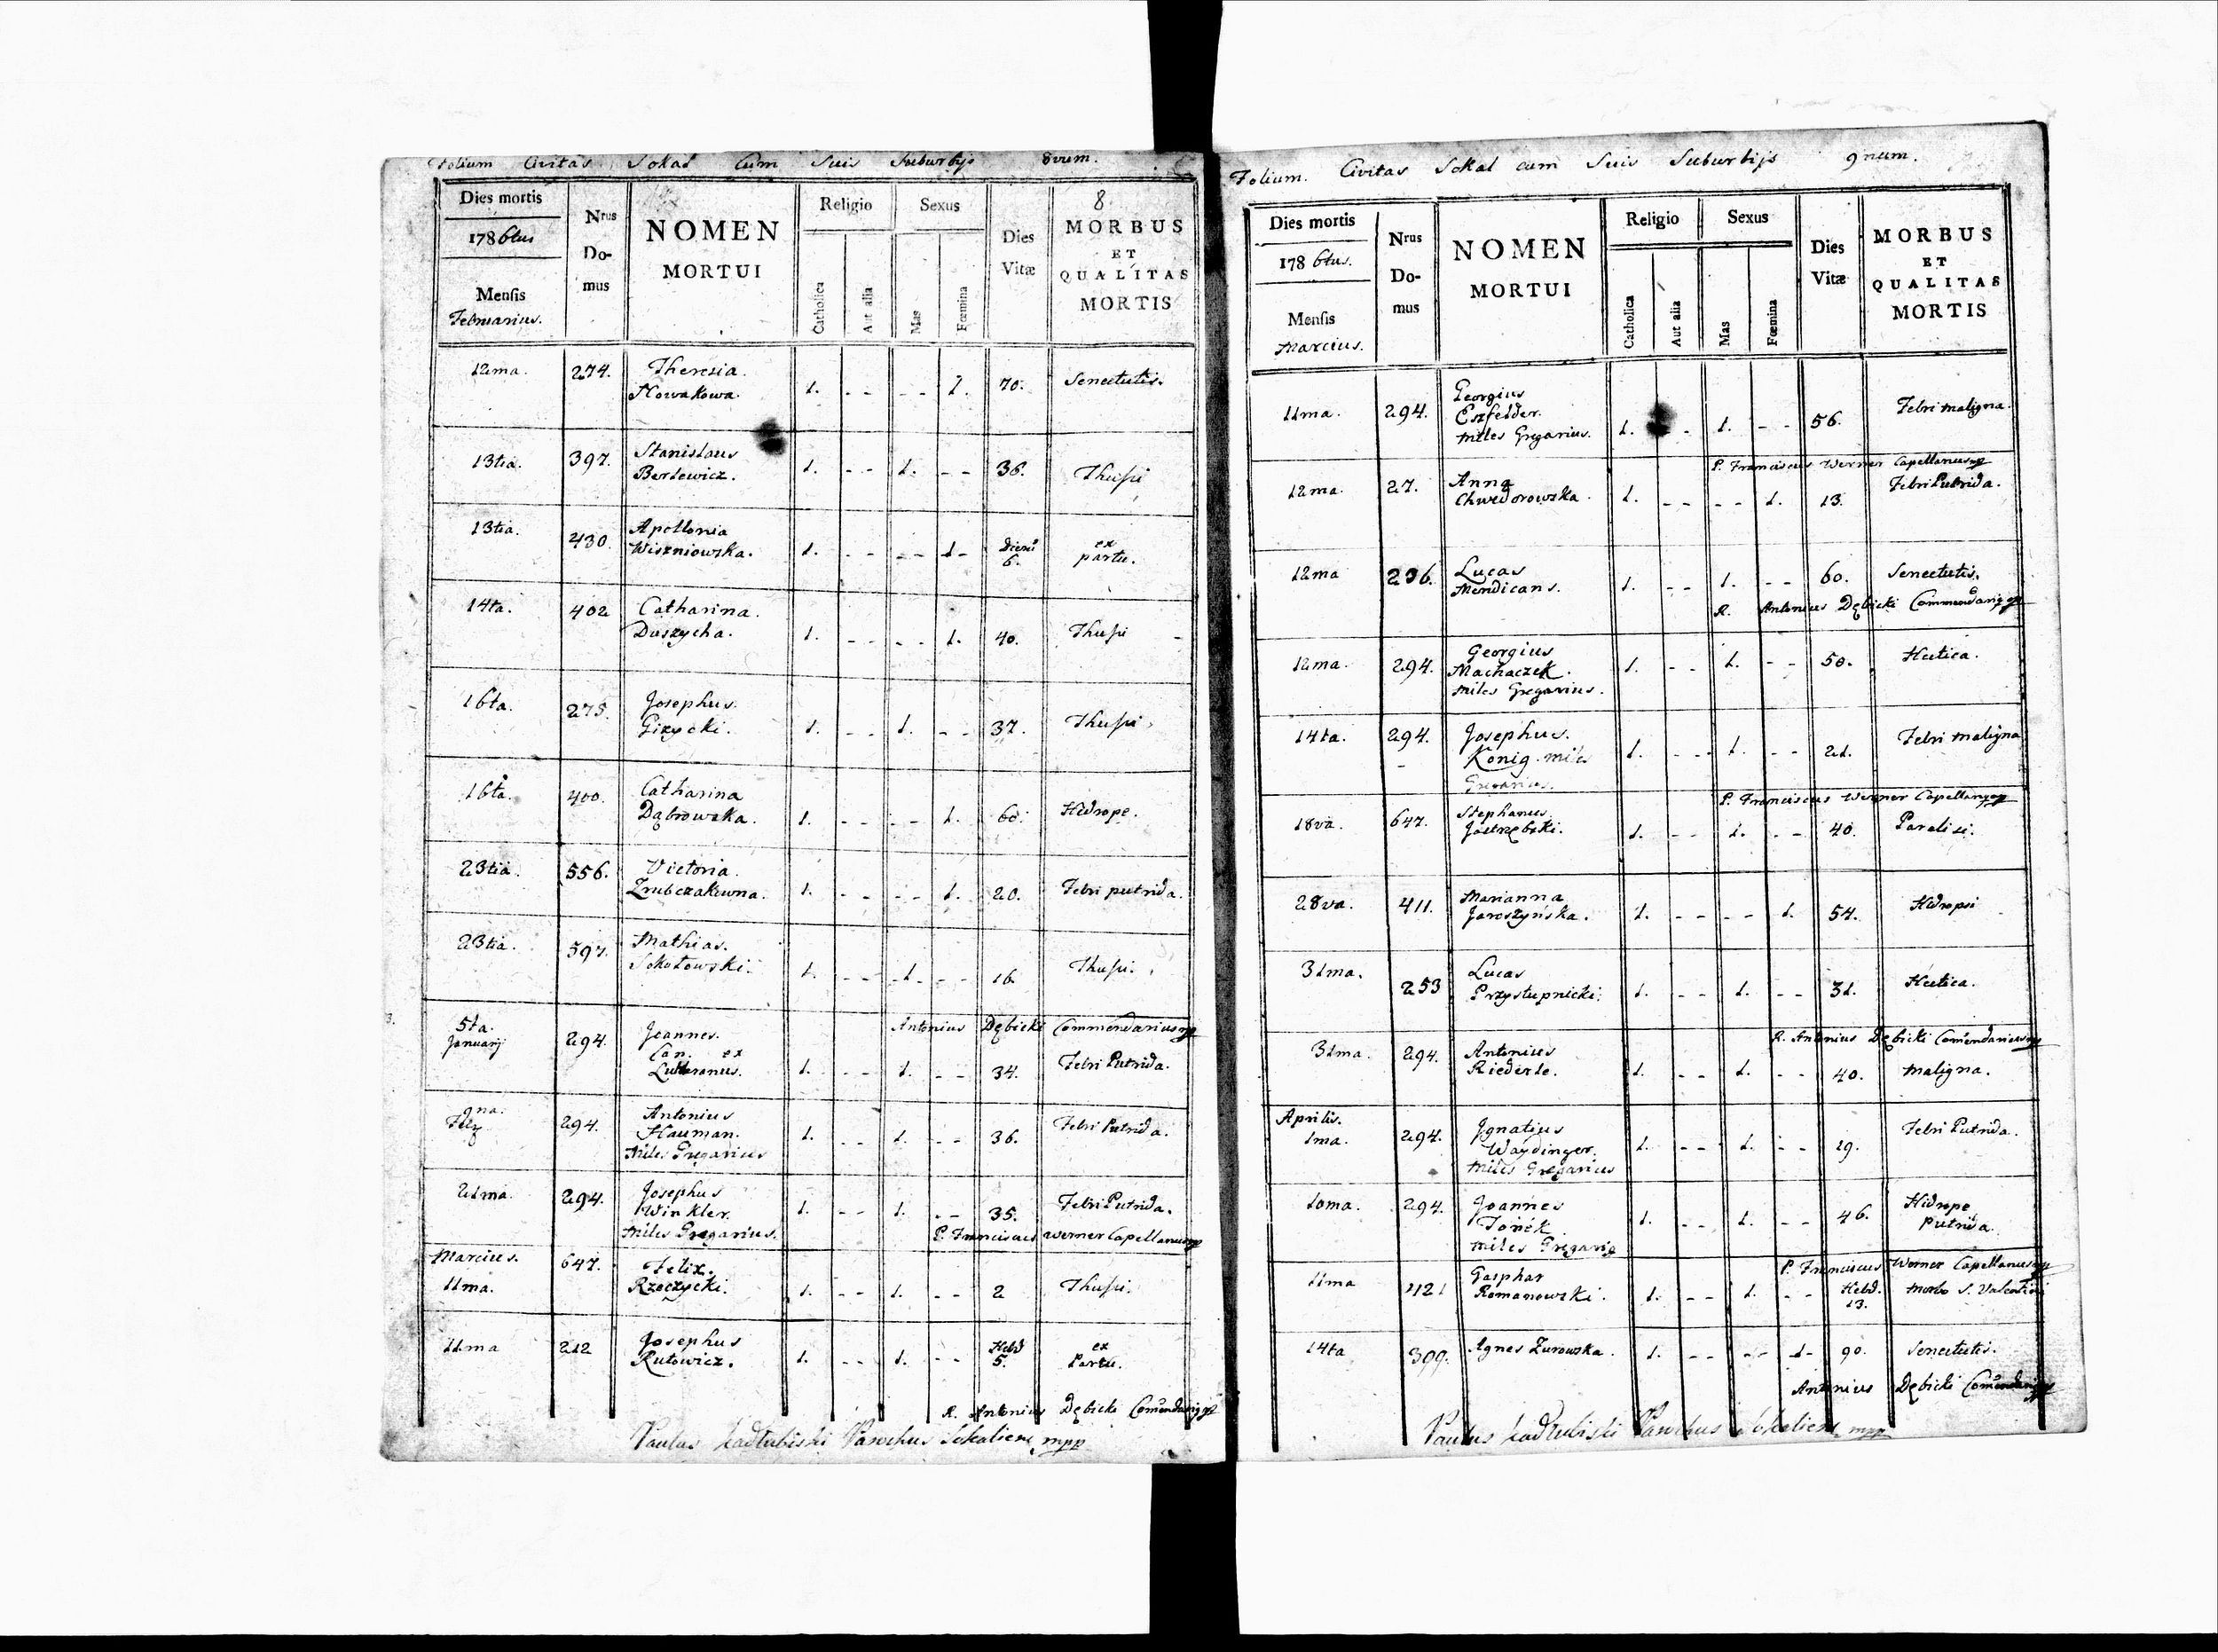 Folium Civitas Sokal Cum Suis Suburbijs 8vum.
Dies mortis
1786tus
Mensis
Februarius.
Nrus
Do-
mus
NOMEN
MORTUI
Religio
Catholica
Aut alia
Sexus
Mas
Fœmina
Dies
Vitæ
8.
MORBUS
ET
QUALITAS
MORTIS
12ma. 274. Theresia 1. - - - - 1. 70. Senectutis.
Nowakowa.
13tia. 397. Stanislaus 1. - - 1. - - 36. Thussi
Bertewicz.
13tia. 430. Apollonia 1. - - - - 1 - Dieru 6. ex
Wiszniowska. partu.
14ta. 402 Catharina. 1. - - - - 1. 40. Thussi
Duszycha.
16ta. 275. Josephus. 1. - - 1. - - 37. Thussi.
Gizycki.
16ta. 400. Catharina 1. - - - - 1. 60. Hidrope.
Dąbrowska.
23tia. 556. Victoria 1. - - - - 1. 20. Febri putrida.
Zrubczakowna.
23tia. 597. Mathias. 1. - - 1. - - 16. Thussi.
Sokołowski.
Antonius Dębicki Commendarius mp
5ta. 294. Joannes. 1. - - 1. - - 34. Febri Putrida.
Januarij Can. ex
Lutheranus.
9na. 294. Antonius 1. - - 1. - - 36. Febri Putrida.
Hauman.
Miles Gregarius
21ma. 294. Josephus 1. - - 1. - - 35. Febri Putrida.
Winkler.
Miles Gregarius.
P. Franciscus Werner Capellanus mp
Marcius. 647. Felix. 1. - - 1. - - 2 Thussi.
11ma. Rzeczycki.
11ma 212 Josephus 1. - - 1. - - Hebd 5. ex
Rutowicz. Partu.
R. Antonius Dębicki Comendarius mp
Paulus Kadłubiski Parochus Sokaliens mpp
Folium. Civitas Sokal cum Suis Suburbijs 9num.
Dies mortis
178 6tus.
Mensis
Marcius.
Nrus
Do-
mus
NOMEN
MORTUI
Religio
Catholica
Aut alia
Sexus
Mas
Fœmina
Dies
Vitæ
MORBUS
ET
QUALITAS
MORTIS
11ma. 294. Georgius 1. - - 1. - - 56. Febri maligna.
Eszfelder.
Miles Gregarius.
P. Franciscus Werner Capellanus mp
12ma. 27. Anna 1. - - - - 1. 13. Febri Putrida.
Chwedorowska.
12ma 296. Lucas 1. - - 1. - - 60. Senectutis.
Mendicans.
R. Antonius Dębicki Commendarius mp
12ma. 294. Georgius 1. - - 1. - - 50. Hectica.
Machaczek.
Miles Gregarius.
14ta. 294. Josephus. 1. - - 1. - - 21. Febri maligna
König miles
Gregarius.
P. Franciscus Werner Capellanus mp
18va. 647. Stephanus 1. - - 1. - - 40. Paralisi.
Jastrzębski.
28va. 411. Marianna 1. - - - - 1. 54. Hidropsi
Jaroszyńska.
31ma. 253 Lucas 1. - - 1. - - 31. Hectica.
Przystupnicki.
R. Antonius Dębicki Comendarius mp
31ma. 294. Antonius 1. - - 1. - - 40. maligna.
Riederle.
Aprilis.
1ma. 294. Ignatius 1. - - 1. - - 29. Febri Putrida.
Waydinger.
Miles Gregarius
10ma. 294. Joannes 1. - - 1. - - 46. Hidrope
Tonék putrida.
Miles Gregarius
P. Franciscus Werner Capellanus mp
11ma 421 Gasphar 1. - - 1. - - Hebd. 13. Morbo S. Valentini
Romanowski.
14ta 399. Agnes Zurowska. 1. - - - - 1 - 90. Senectutis.
Antonius Dębicki Comendarius mp
Paulus Kadłubiski Parochus Sokaliens mpp